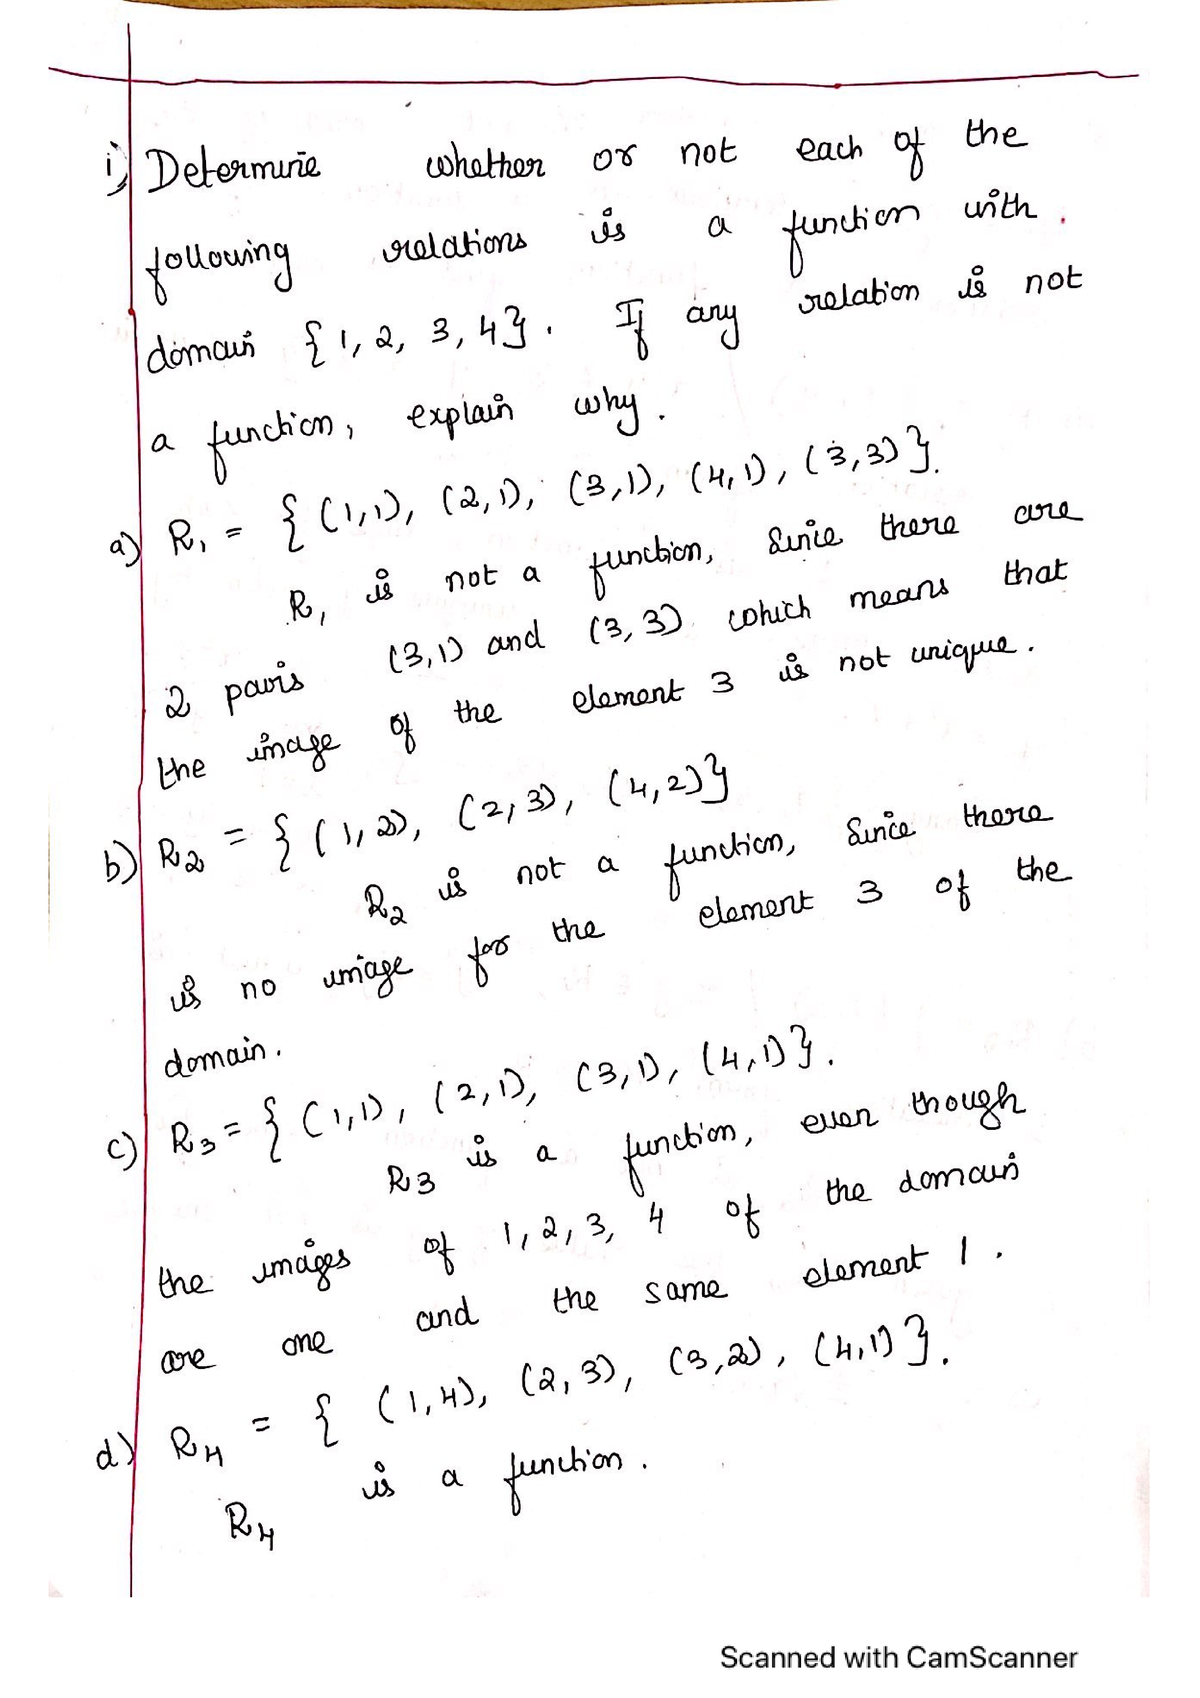 i) Determine whether or not each of the
following relations is a function with
domain {1, 2, 3, 4}. If any relation is not
a function, explain why.
a) R₁ = {(1,1), (2,1), (3,1), (4,1), (3,3)}.
R₁ is not a function, Since there are
2 pairs (3,1) and (3,3) which means that
the image of the element 3 is not unique.
b) R₂ = {(1,2), (2,3), (4,2)}
R₂ is not a function, Since there
is no image for the element 3 of the
domain.
c) R₃ = {(1,1), (2,1), (3,1), (4,1)}.
R₃ is a function, even though
the images of 1, 2, 3, 4 of the domain
are one and the same element 1.
d) R₄ = {(1,4), (2,3), (3,2), (4,1)}.
R₄ is a function.
Scanned with CamScanner